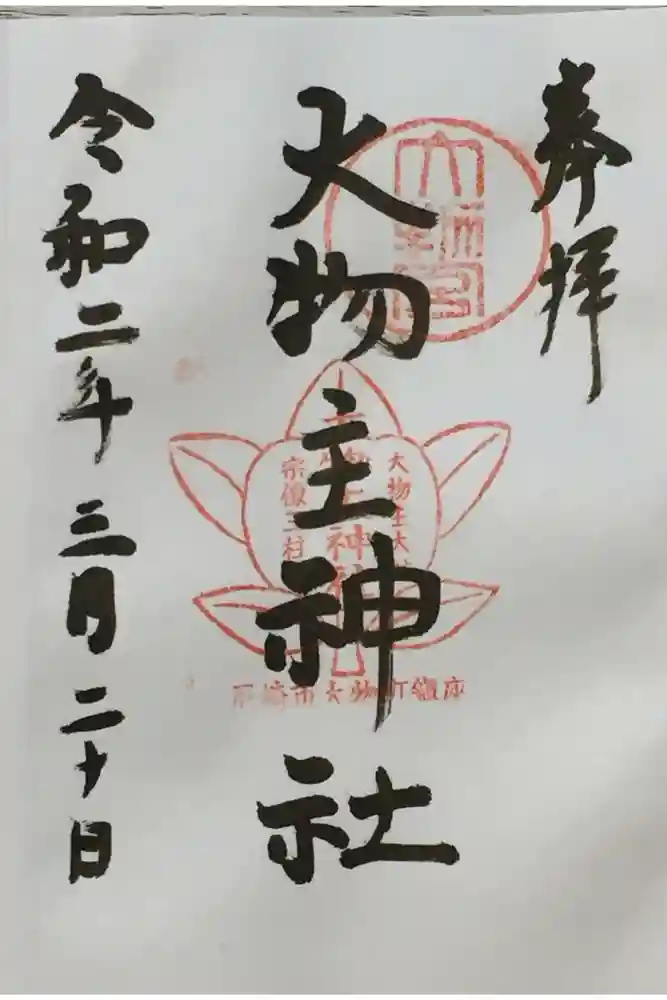 奉拝
大物主神社
大物主大
宗像三
尼崎市大物町鎮座
令和二年三月二十日